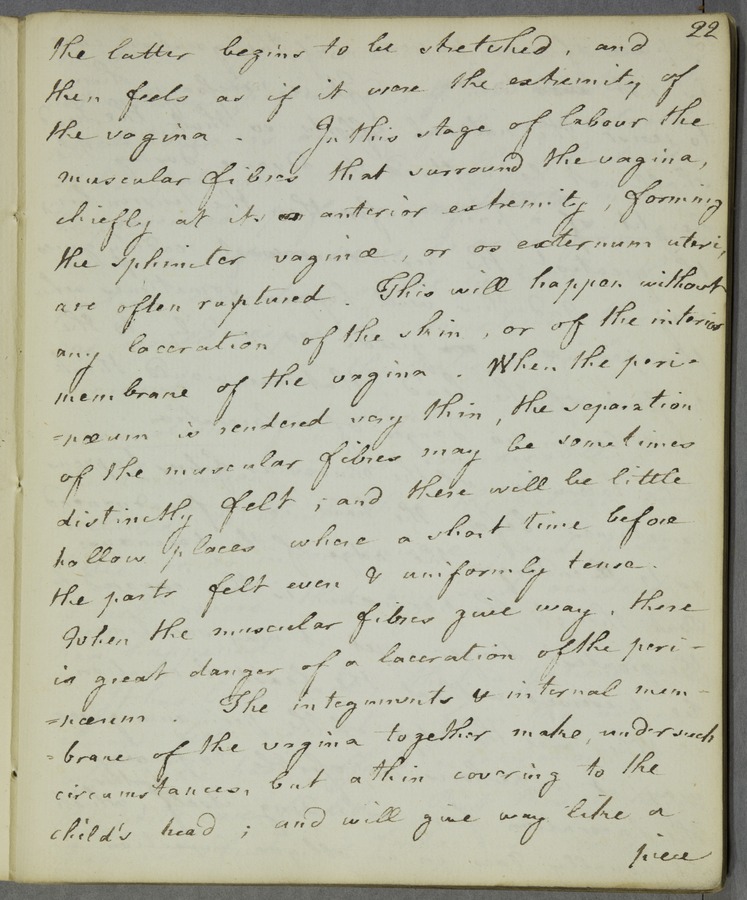 22
the latter begins to be stretched, and
then feels as if it were the extremity of
the vagina. In this stage of labour the
muscular fibres that surround the vagina,
chiefly at its anterior extremity, forming
the sphincter vaginæ, or os externum uteri,
are often ruptured. This will happen without
any laceration of the skin, or of the interior
membrane of the vagina. When the peri-
=næum is rendered very thin, the separation
of the muscular fibres may be sometimes
distinctly felt; and there will be little
hollow places where a short time before
the parts felt even & uniformly tense.
When the muscular fibres give way, there
is great danger of a laceration of the peri-
=næum. The integuments & internal mem-
=brane of the vagina together make, under such
circumstances, but a thin covering to the
child's head; and will give way like a
piece